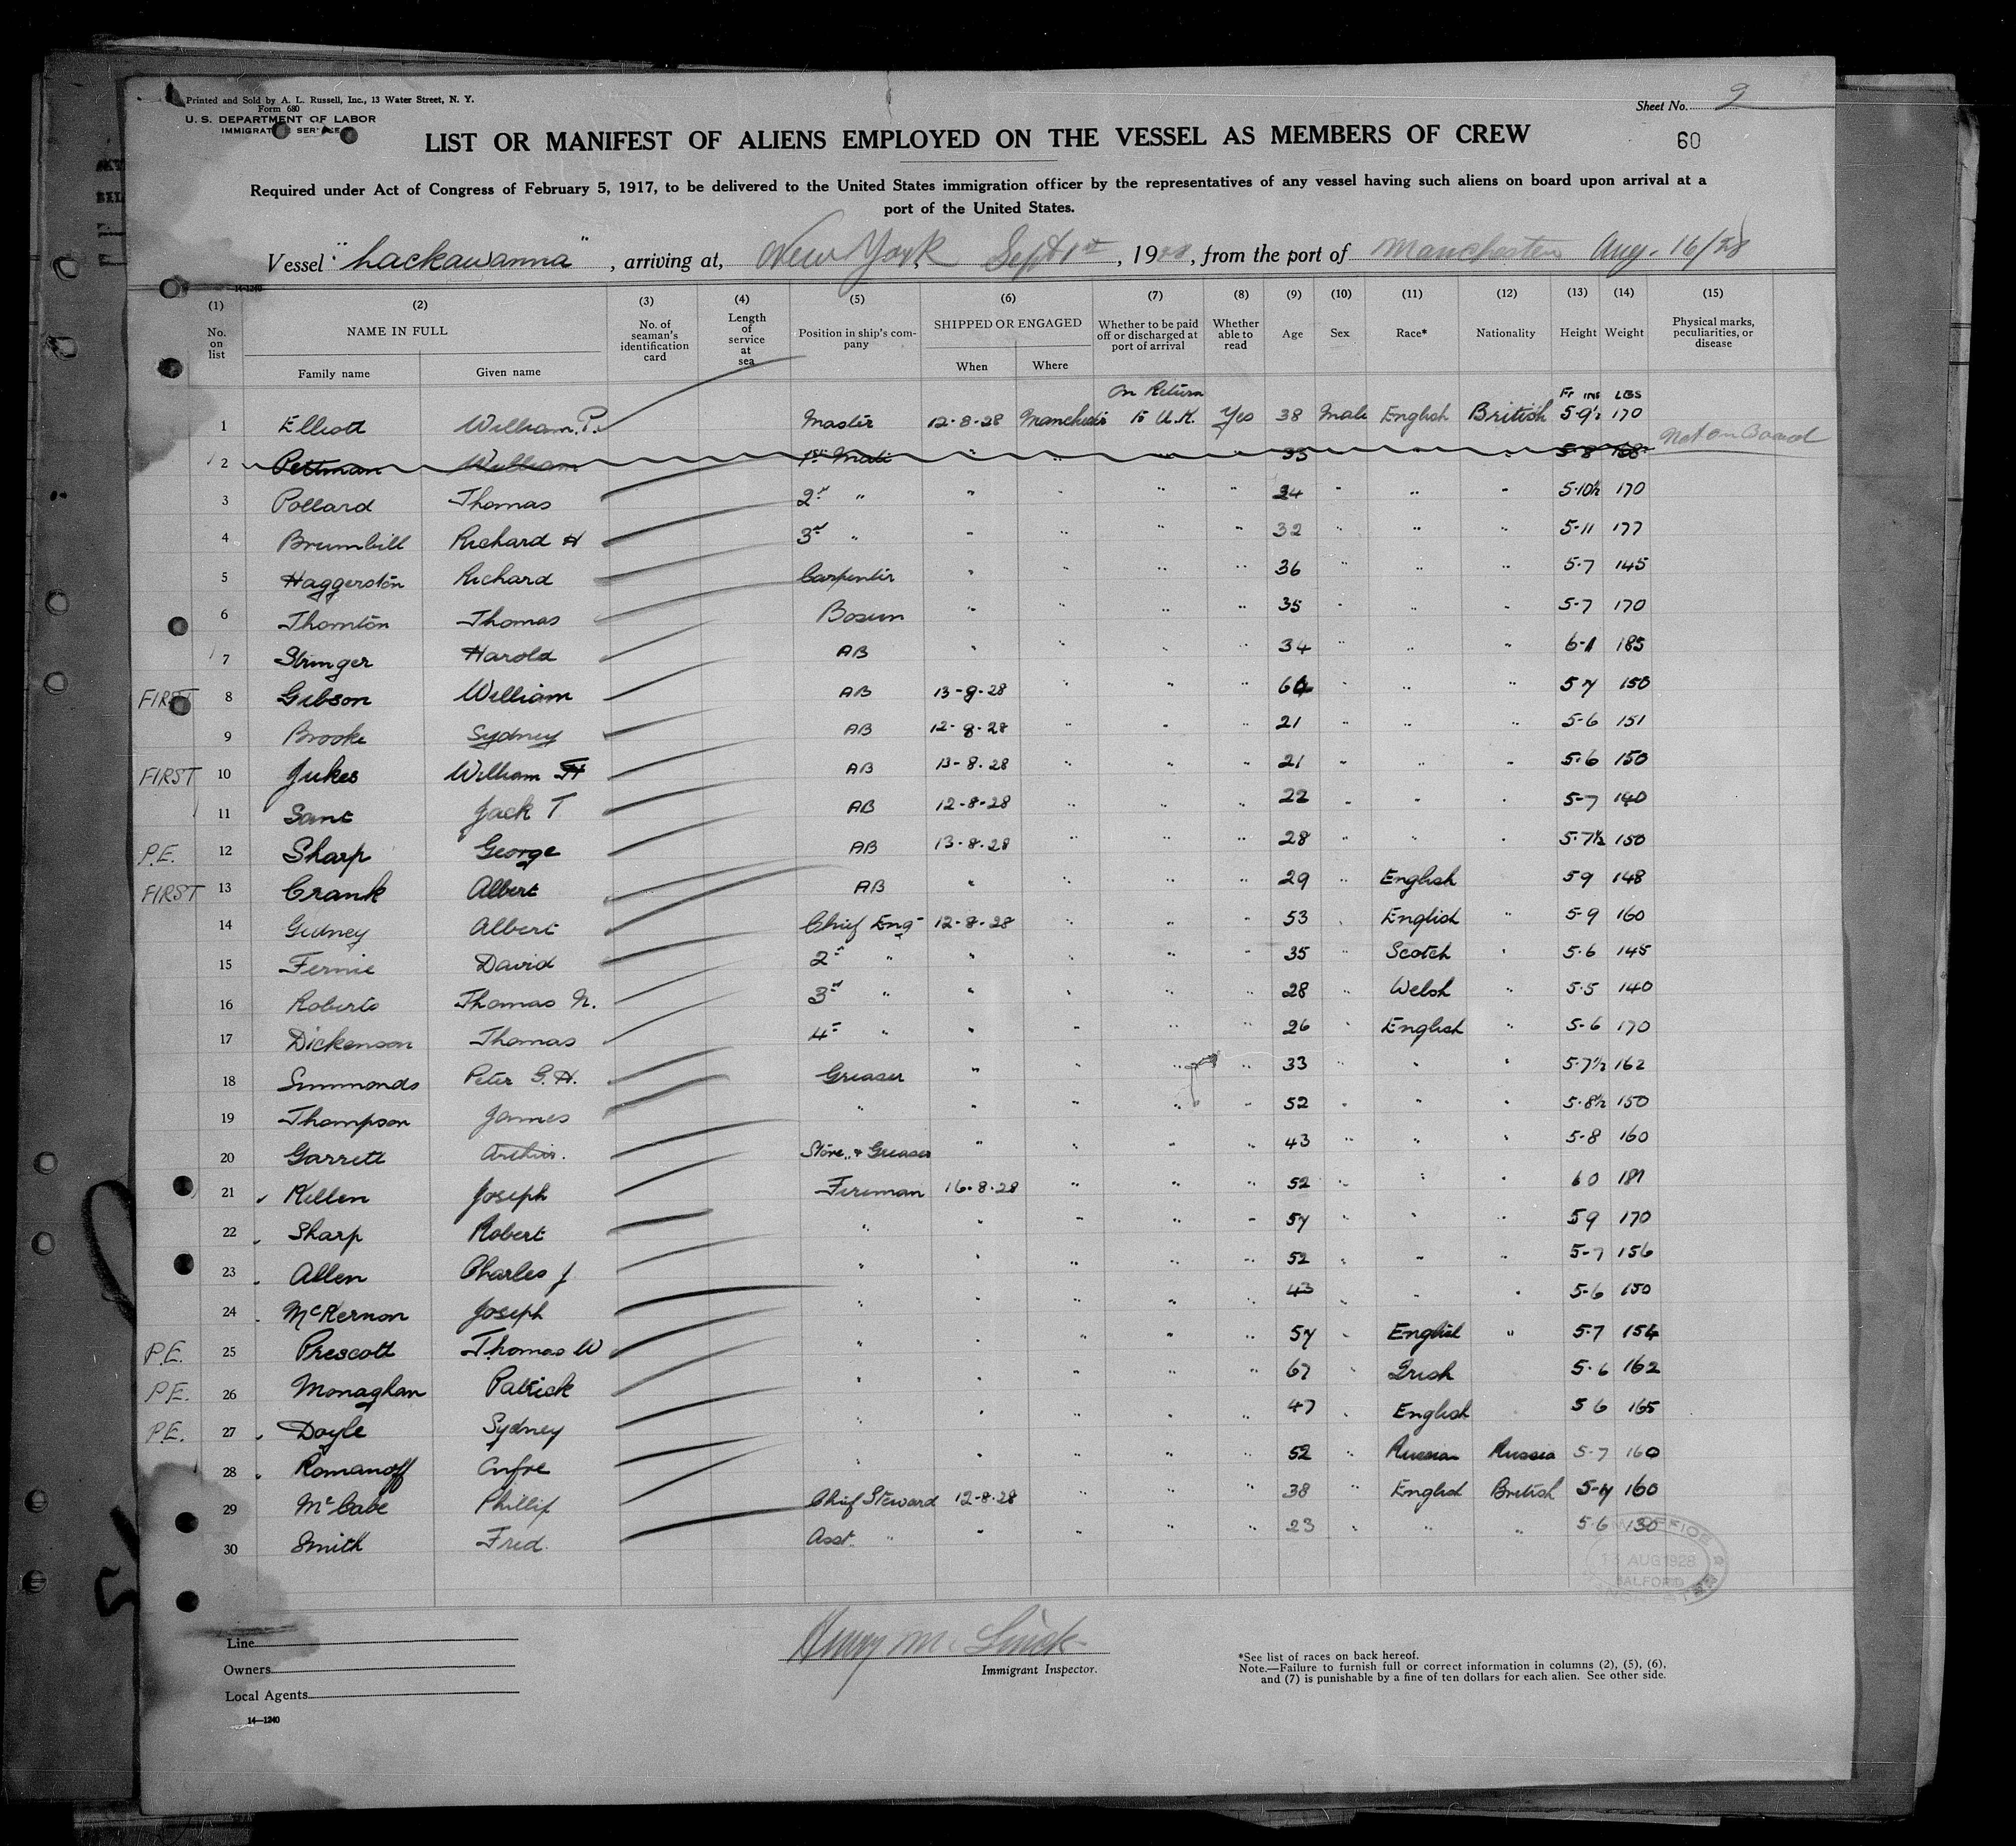 Printed and Sold by A. L. Russell, Inc., 13 Water Street, N. Y.
Form 680
U. S. DEPARTMENT OF LABOR
IMMIGRATION SERVICE
Sheet No. 2
60
LIST OR MANIFEST OF ALIENS EMPLOYED ON THE VESSEL AS MEMBERS OF CREW
Required under Act of Congress of February 5, 1917, to be delivered to the United States immigration officer by the representatives of any vessel having such aliens on board upon arrival at a
port of the United States.
Vessel "Lackawanna", arriving at, New York, Sept 1st, 1928, from the port of Manchester Aug. 16/28
14-1240
(1) (2) (3) (4) (5) (6) (7) (8) (9) (10) (11) (12) (13) (14) (15)
No. on list NAME IN FULL No. of seaman's identification card Length of service at sea Position in ship's company SHIPPED OR ENGAGED Whether to be paid off or discharged at port of arrival Whether able to read Age Sex Race* Nationality Height Weight Physical marks, peculiarities, or disease
Family name Given name When Where
On Return Ft ins LBS
1 Elliott William P. Master 12-8-28 Manchester to U.K. Yes 38 Male English British 5-9½ 170
2 Pettman William 1st Mate " " " " 33 " " " 5-8 168 Not on Board
3 Pollard Thomas 2nd " " " " " 24 " " " 5-10½ 170
4 Brumbill Richard H 3rd " " " " " 32 " " " 5-11 177
5 Haggerston Richard Carpenter " " " " 36 " " " 5-7 145
6 Thornton Thomas Bosun " " " " 35 " " " 5-7 170
7 Stringer Harold AB " " " " 34 " " " 6-1 185
FIRST 8 Gibson William AB 13-8-28 " " " 64 " " " 5-7 150
9 Brooke Sydney AB 12-8-28 " " " 21 " " " 5-6 151
FIRST 10 Jukes William H AB 13-8-28 " " " 21 " " " 5-6 150
11 Sant Jack T AB 12-8-28 " " " 22 " " " 5-7 140
P.E. 12 Sharp George AB 13-8-28 " " " 28 " " " 5-7½ 150
FIRST 13 Crank Albert AB " " " " 29 " English 5 9 148
14 Gidney Albert Chief Eng 12-8-28 " " " 53 " English " 5-9 160
15 Fernie David 2nd " " " " " 35 " Scotch " 5-6 145
16 Roberts Thomas N. 3rd " " " " " 28 " Welsh " 5-5 140
17 Dickenson Thomas 4th " " " " " 26 " English " 5-6 170
18 Simmonds Peter G. H. Greaser " " " " 33 " " " 5-7½ 162
19 Thompson James " " " " " 52 " " " 5-8½ 150
20 Garrett Arthur. Store & Greaser " " " " 43 " " " 5-8 160
21 Killen Joseph Fireman 16-8-28 " " " 52 " " " 6 0 181
22 Sharp Robert " " " " " 57 " " " 5 9 170
23 Allen Charles J. " " " " " 52 " " " 5-7 156
24 McKernon Joseph " " " " " 43 " " " 5-6 150
P.E. 25 Prescott Thomas W " " " " " 57 " English " 5-7 154
P.E. 26 Monaghan Patrick " " " " " 67 " Irish 5-6 162
P.E. 27 Doyle Sydney " " " " " 47 " English " 5 6 165
28 Romanoff " " " " " 52 " Russian Russia 5-7 160
29 McCabe Phillip Chief Steward 12-8-28 " " " 38 " English British 5-4 160
30 Smith Fred. Asst. " " " " " 23 " " " 5-6 130
OFFICE
AUG 1928
SALFORD
Line
Owners
Local Agents
14—1240
Immigrant Inspector.
*See list of races on back hereof.
Note.—Failure to furnish full or correct information in columns (2), (5), (6),
and (7) is punishable by a fine of ten dollars for each alien. See other side.